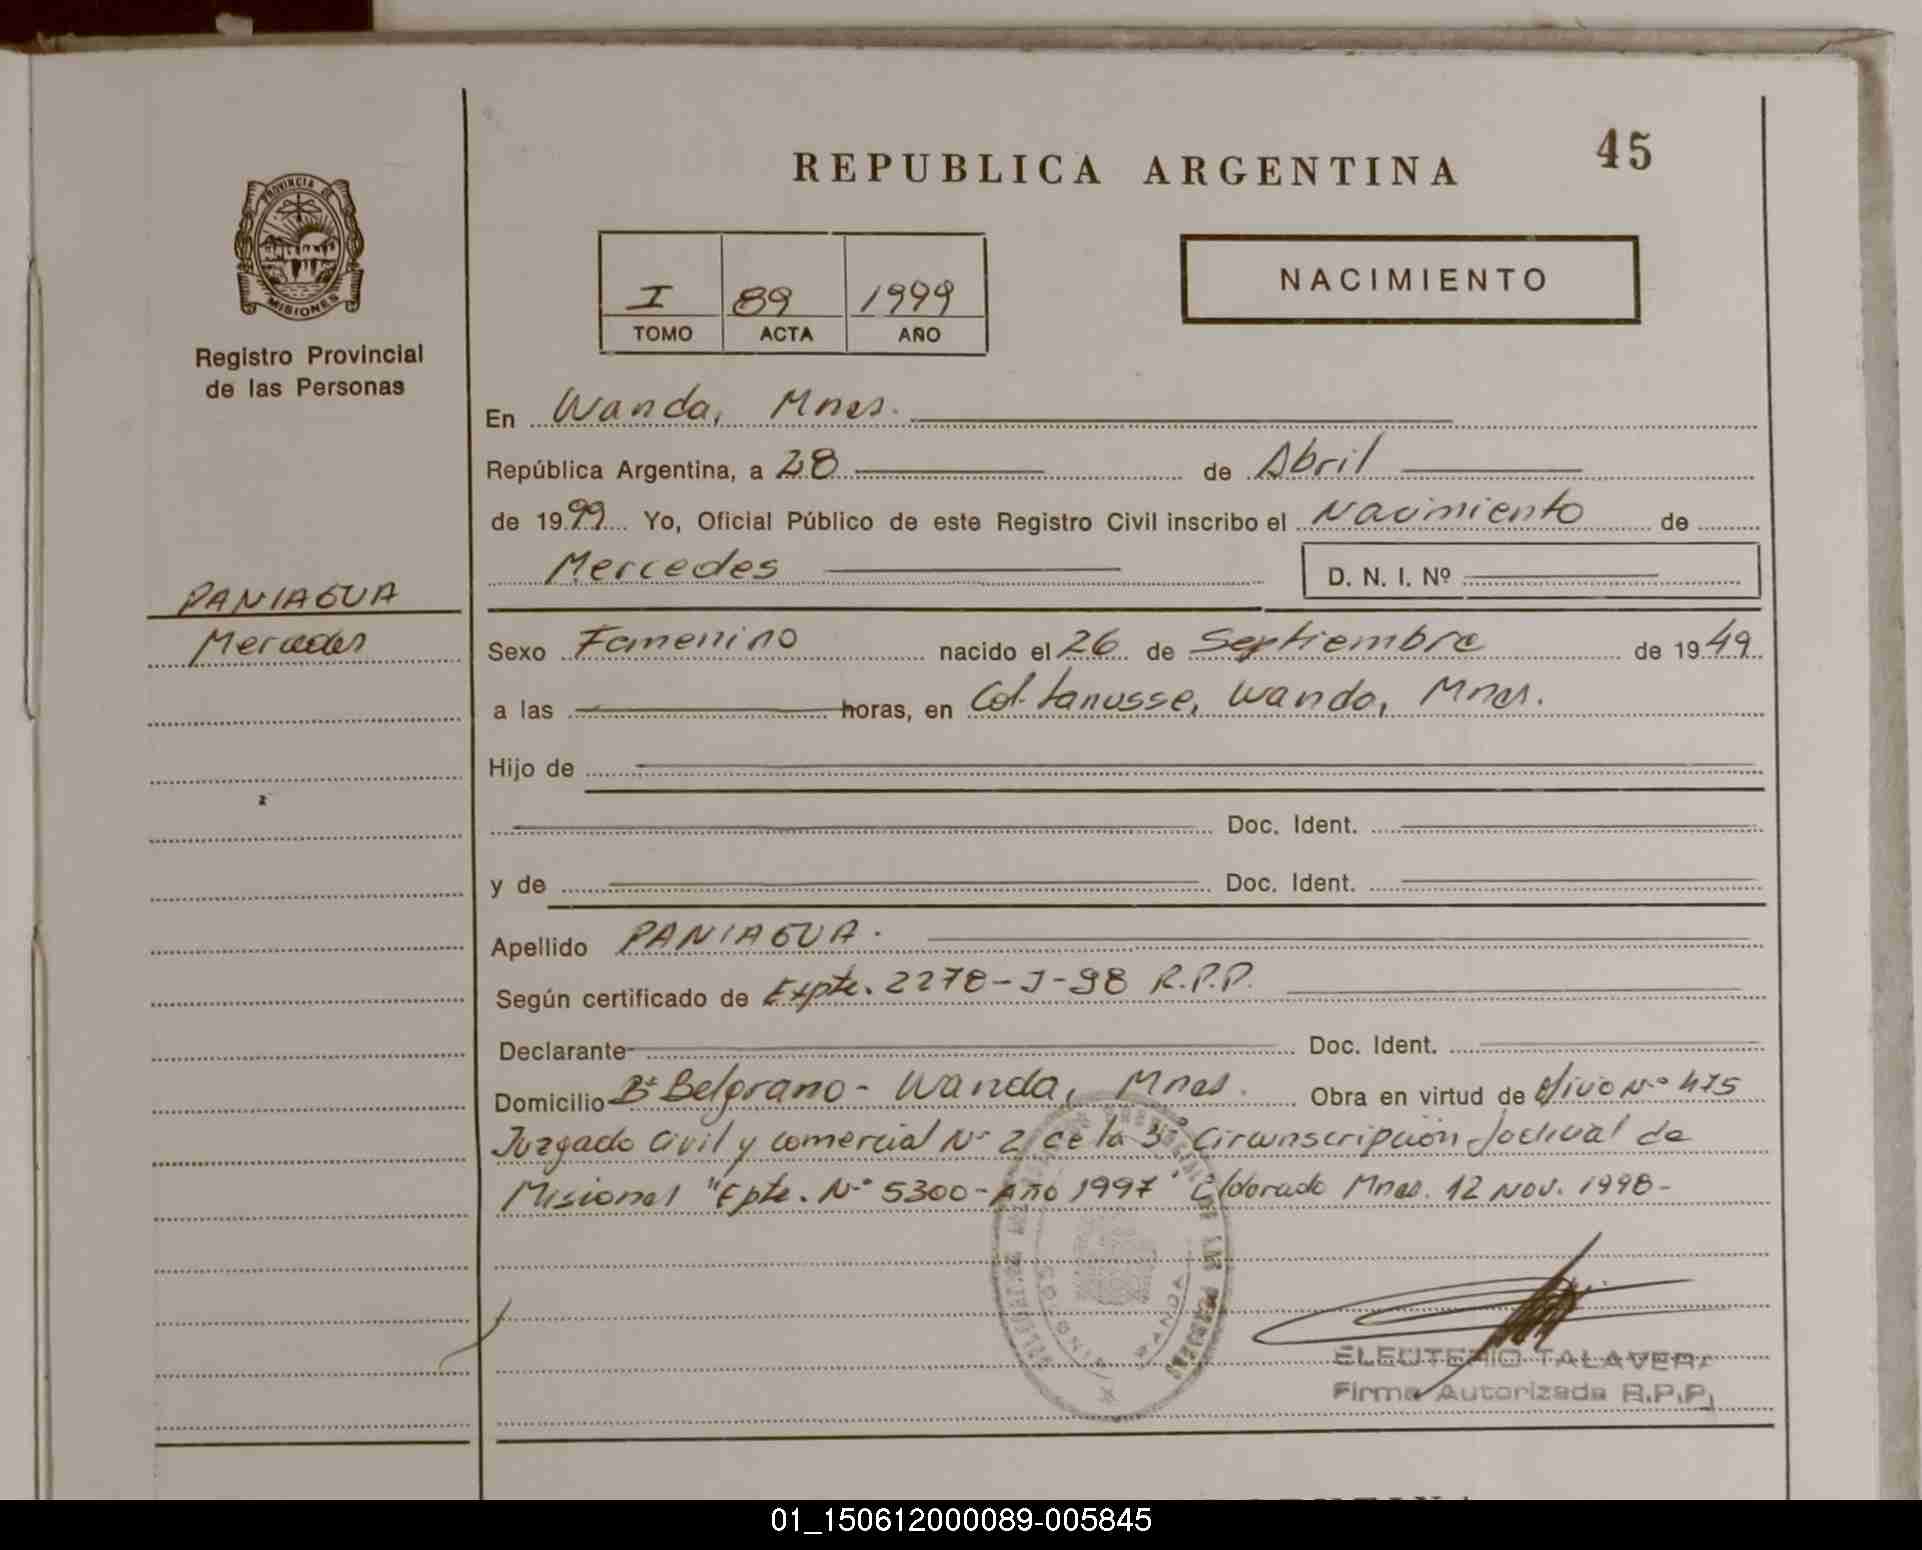 45
REPUBLICA ARGENTINA
PROVINCIA DE
MISIONES
Registro Provincial
de las Personas
I 89 1999
TOMO ACTA AÑO
NACIMIENTO
En Wanda, Mnes.
República Argentina, a 28 de Abril
de 1999 Yo, Oficial Público de este Registro Civil inscribo el Nacimiento de
Mercedes D. N. I. Nº
PANIAGUA
Mercedes
Sexo Femenino nacido el 26 de Septiembre de 1949
a las horas, en Col. Lanusse, Wanda, Mnes.
Hijo de
Doc. Ident.
y de Doc. Ident.
Apellido PANIAGUA.
Según certificado de Expte. 2278-J-98 R.P.P.
Declarante Doc. Ident.
Domicilio Bº Belgrano - Wanda, Mnes. Obra en virtud de Nº 475
Juzgado Civil y comercial Nº 2 de la 3º Circunscripción Judicial de
Misiones "Epte. Nº 5300-Año 1997" Eldorado Mnes. 12 NOV. 1998-
WANDA
MISIONES
ELEUTERIO TALAVERA
Firma Autorizada R.P.P.
01_150612000089-005845